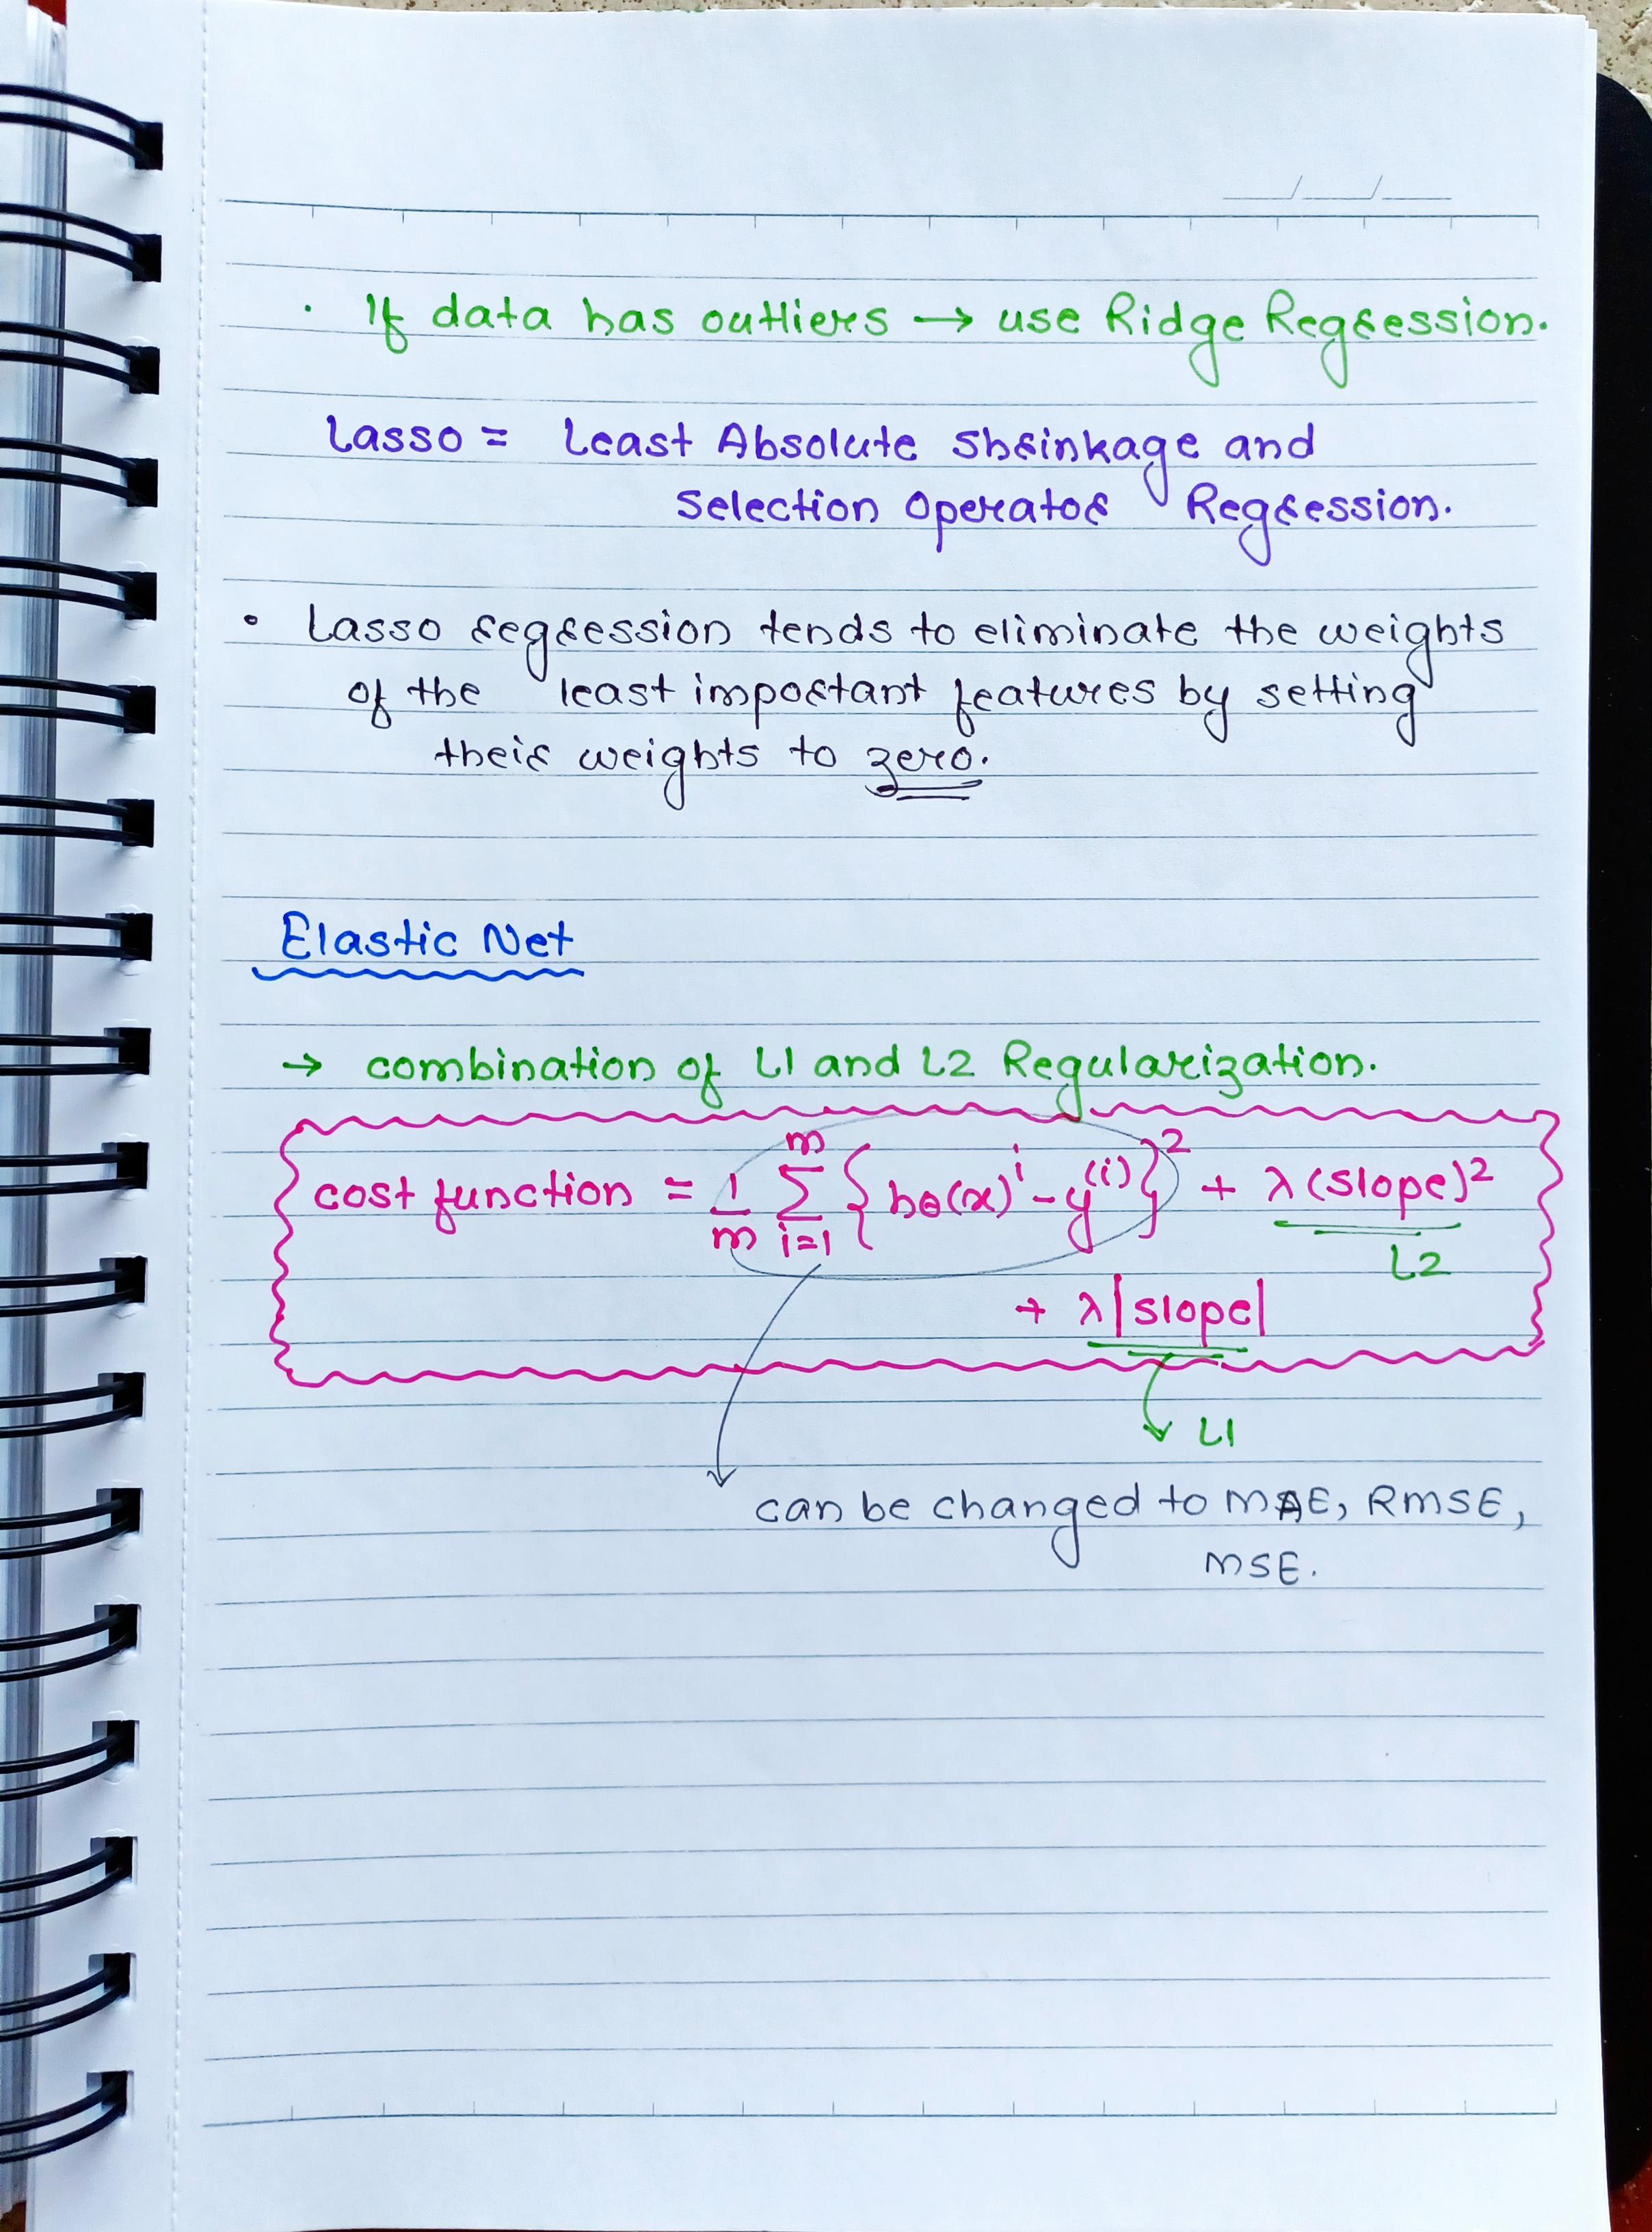 · If data has outliers → use Ridge Regression.
Lasso = Least Absolute Shrinkage and
Selection Operator Regression.
• Lasso regression tends to eliminate the weights
of the least important features by setting
their weights to zero.
Elastic Net
→ combination of L1 and L2 Regularization.
cost function = 1/m Σ_{i=1}^{m} { hθ(x)^i - y^(i) }^2 + λ(slope)^2
L2
+ λ|slope|
L1
can be changed to MAE, RMSE,
MSE.